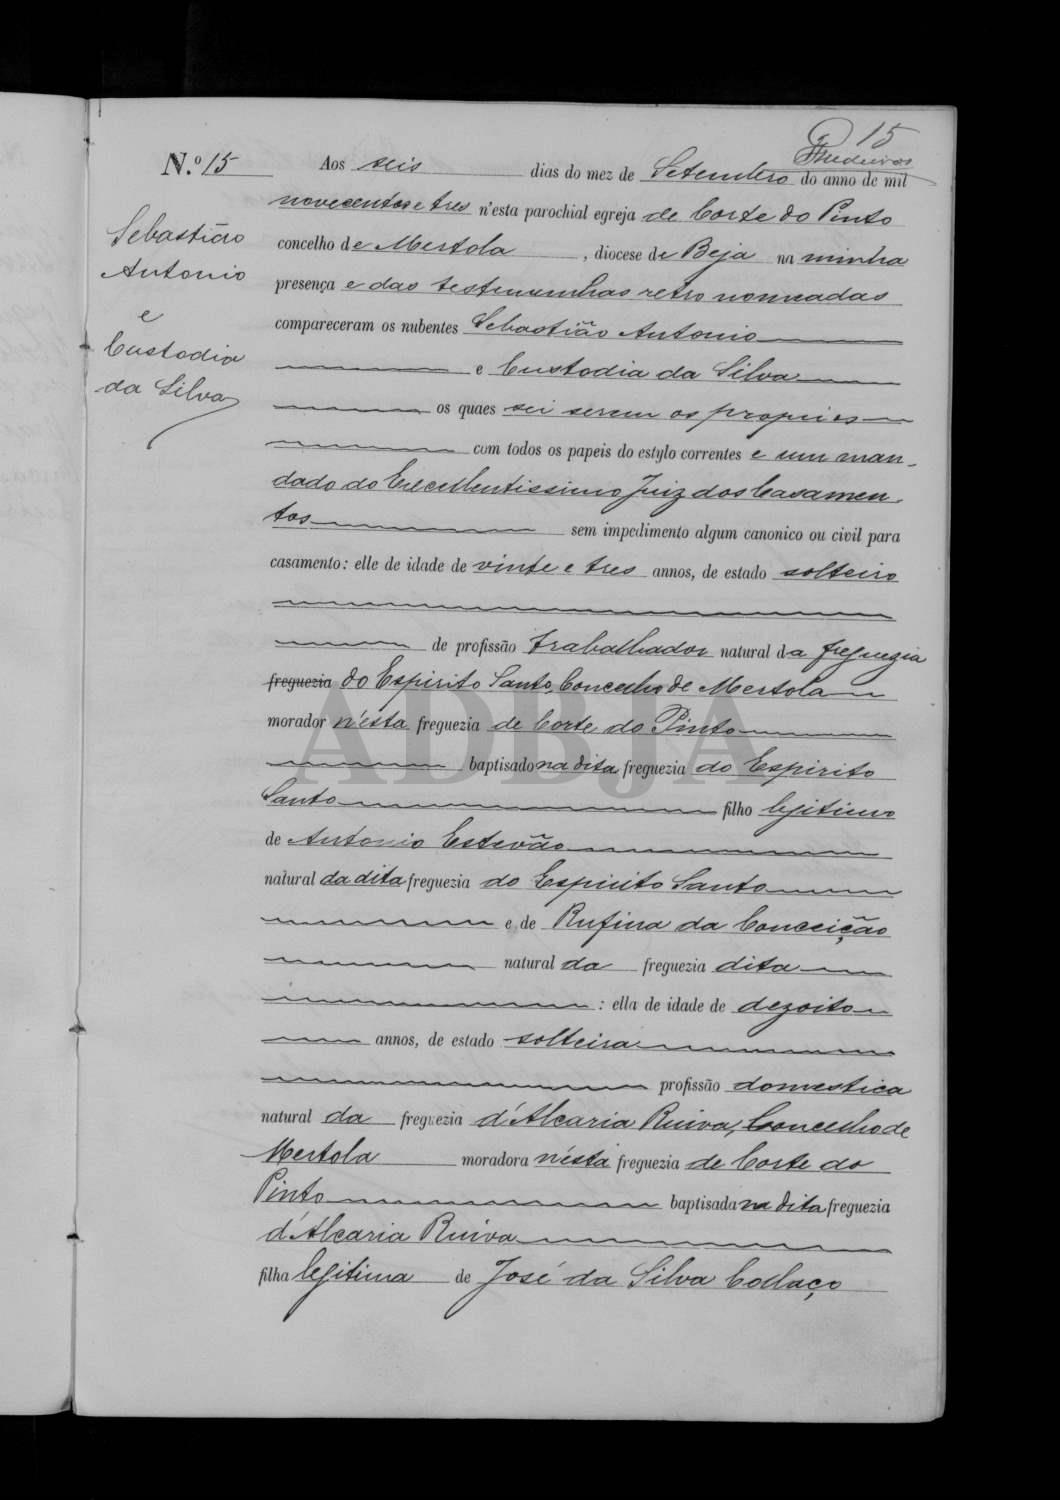 15
Medeiros
N.º 15
Sebastião
Antonio
e
Custodia
da Silva
Aos seis dias do mez de Setembro do anno de mil
novecentos e tres n'esta parochial egreja de Corte do Pinto
concelho de Mertola, diocese de Beja na minha
presença e das testemunhas retro nomeadas
compareceram os nubentes Sebastião Antonio
e Custodia da Silva
os quaes sei serem os proprios
com todos os papeis do estylo correntes e um man-
dado do Excellentissimo Juiz dos Casamen-
tos sem impedimento algum canonico ou civil para
casamento: elle de idade de vinte e tres annos, de estado solteiro
de profissão trabalhador natural da freguezia
freguezia do Espirito Santo, Concelho de Mertola
morador n'esta freguezia de Corte do Pinto
baptisado na dita freguezia do Espirito
Santo filho legitimo
de Antonio Estevão
natural da dita freguezia do Espirito Santo
e de Rufina da Conceição
natural da freguezia dita
: ella de idade de dezoito
annos, de estado solteira
profissão domestica
natural da freguezia d'Alcaria Ruiva, Concelho de
Mertola moradora n'esta freguezia de Corte do
Pinto baptisada na dita freguezia
d'Alcaria Ruiva
filha legitima de José da Silva Collaço
ADBJA